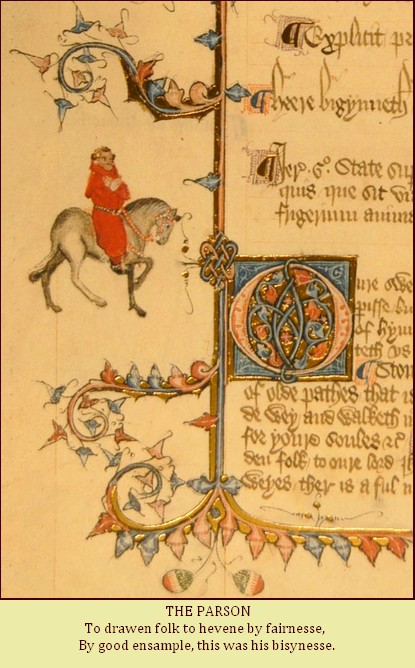 Explicit pr
Heere bigynneth
Jer. 6º. State su
quis que sit vi
frigerium anima
Oure swe
pisse bu
of hym
teth vs
Ston
of olde pathes that is
de wey and walketh in
for youre soules &c
den folk to oure lord Ih
weyes ther is a ful n
THE PARSON
To drawen folk to hevene by fairnesse,
By good ensample, this was his bisynesse.